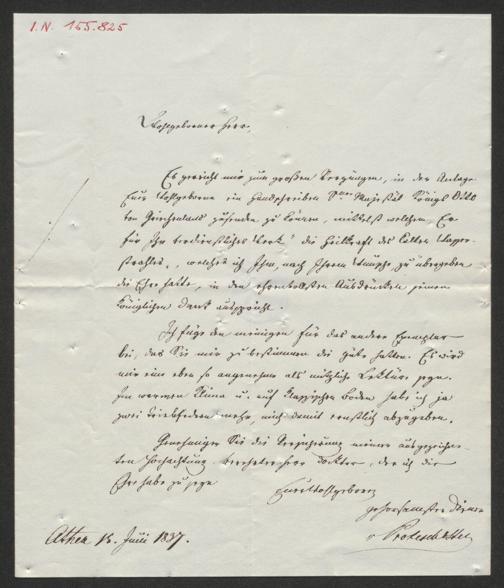 I.N. 155.825
Wohlgeborner Herr,
Es gereicht mir zum großen Vergnügen, in der Anlage
Euer Wohlgeboren ein Handschreiben Sr Majestät Königs Otto
von Griechenland zusenden zu können, mittelst welchen Er
für Ihr verdienstliches Werk "die Heilkraft des kalten Wasser-
strahles", welches ich Ihm, nach Ihrem Wunsche zu übergeben
die Ehre hatte, in den ehrenvollsten Ausdrücken seinen
königlichen Dank ausspricht.
Ich füge den meinigen für das andere Exemplar
bei, das Sie mir zu bestimmen die Güte hatten. Es wird
mir eine eben so angenehme als nützliche Lektüre seyn.
Im warmen Klima u. auf klassischen Boden habe ich ja
zwei Triebfedern mehr, mich damit ernstlich abzugeben.
Genehmigen Sie die Versicherung meiner ausgezeichne-
ten Hochachtung, verehrter Herr Doktor, der ich die
Ehre habe zu seyn
Euer Wohlgeboren
gehorsamster Diener
v Prokesch Osten
Athen 15. Juni 1837.